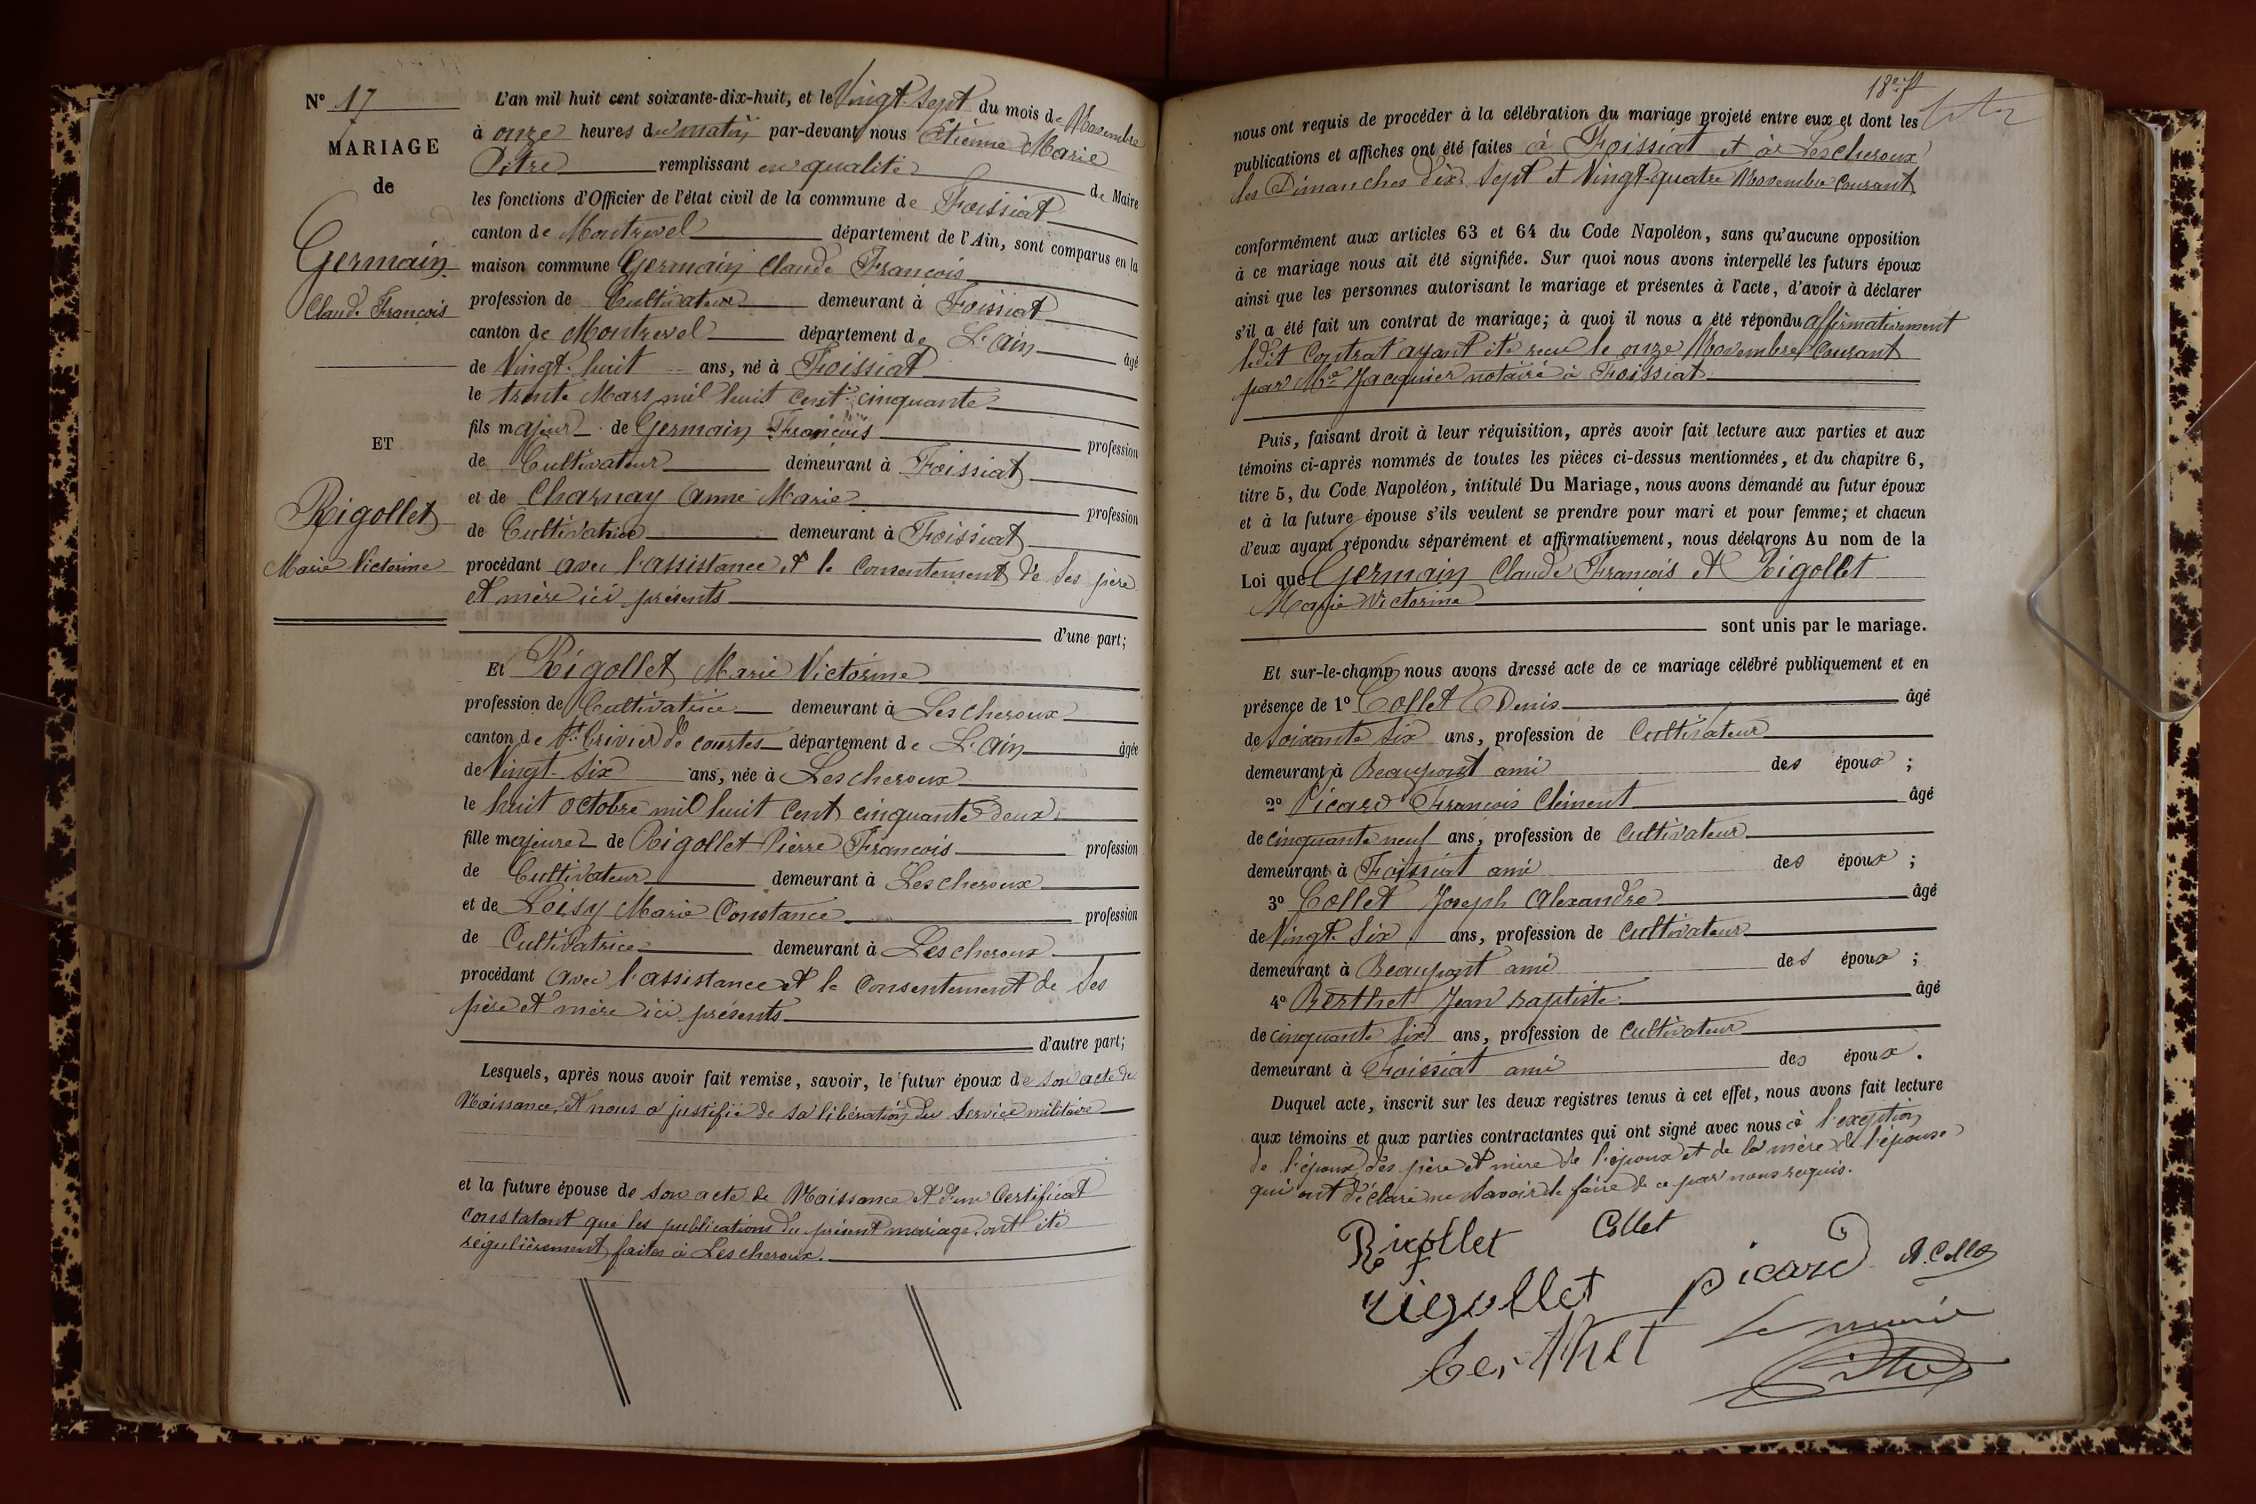 N° 17
MARIAGE
de
Germain
Claude François
ET
Rigollet
Marie Victorine
L'an mil huit cent soixante-dix-huit, et le Vingt-Sept du mois de Novembre
à onze heures du matin par-devant nous Etienne Marie
Pitre remplissant en qualité de Maire
les fonctions d'Officier de l'état civil de la commune de Foissiat
canton de Montrevel département de l'Ain, sont comparus en la
maison commune Germain Claude François
profession de Cultivateur demeurant à Foissiat
canton de Montrevel département de L'Ain âgé
de Vingt-huit ans, né à Foissiat
le trente Mars mil huit cent cinquante
fils majeur de Germain François profession
de Cultivateur demeurant à Foissiat
et de Charnay Anne Marie profession
de Cultivatrice demeurant à Foissiat
procédant avec l'assistance et le Consentement de Ses père
et mère ici présents
d'une part;
Et Rigollet Marie Victorine
profession de Cultivatrice demeurant à Lescheroux
canton de St Trivier de courtes département de L'Ain âgée
de Vingt-Six ans, née à Lescheroux
le huit octobre mil huit cent cinquante deux
fille majeure de Rigollet Pierre François profession
de Cultivateur demeurant à Lescheroux
et de Loisy Marie Constance profession
de Cultivatrice demeurant à Lescheroux
procédant avec l'assistance et le Consentement de Ses
père et mère ici présents
d'autre part;
Lesquels, après nous avoir fait remise, savoir, le futur époux de son acte de
Naissance, et nous a justifié de sa libération du Service militaire
et la future épouse de son acte de Naissance et d'un Certificat
constatant que les publications du présent mariage ont été
régulièrement faites à Lescheroux.
nous ont requis de procéder à la célébration du mariage projeté entre eux et dont les
publications et affiches ont été faites à Foissiat et à Lescheroux
les Dimanches dix Sept et Vingt-quatre Novembre Courant
conformément aux articles 63 et 64 du Code Napoléon, sans qu'aucune opposition
à ce mariage nous ait été signifiée. Sur quoi nous avons interpellé les futurs époux
ainsi que les personnes autorisant le mariage et présentes à l'acte, d'avoir à déclarer
s'il a été fait un contrat de mariage; à quoi il nous a été répondu affirmativement
ledit Contrat ayant été reçu le onze Novembre Courant
par Me Jacquier notaire à Foissiat
Puis, faisant droit à leur réquisition, après avoir fait lecture aux parties et aux
témoins ci-après nommés de toutes les pièces ci-dessus mentionnées, et du chapitre 6,
titre 5, du Code Napoléon, intitulé Du Mariage, nous avons demandé au futur époux
et à la future épouse s'ils veulent se prendre pour mari et pour femme; et chacun
d'eux ayant répondu séparément et affirmativement, nous déclarons Au nom de la
Loi que Germain Claude François et Rigollet
Marie Victorine
sont unis par le mariage.
Et sur-le-champ nous avons dressé acte de ce mariage célébré publiquement et en
présence de 1° Collet Denis âgé
de Soixante Six ans, profession de Cultivateur
demeurant à Beaupont ami des époux ;
2° Picard François Clément âgé
de cinquante neuf ans, profession de Cultivateur
demeurant à Foissiat ami des époux ;
3° Collet Joseph Alexandre âgé
de Vingt-Six ans, profession de Cultivateur
demeurant à Beaupont ami des époux ;
4° Berthet Jean Baptiste âgé
de cinquante Six ans, profession de Cultivateur
demeurant à Foissiat ami des époux .
Duquel acte, inscrit sur les deux registres tenus à cet effet, nous avons fait lecture
aux témoins et aux parties contractantes qui ont signé avec nous à l'exeption
de l'époux, des père et mère de l'époux et de la mère de l'épouse
qui ont déclaré ne Savoir le faire de ce par nous requis.
Rigollet Collet
rigollet picard A. Collet
berthet Le maire
Pitre